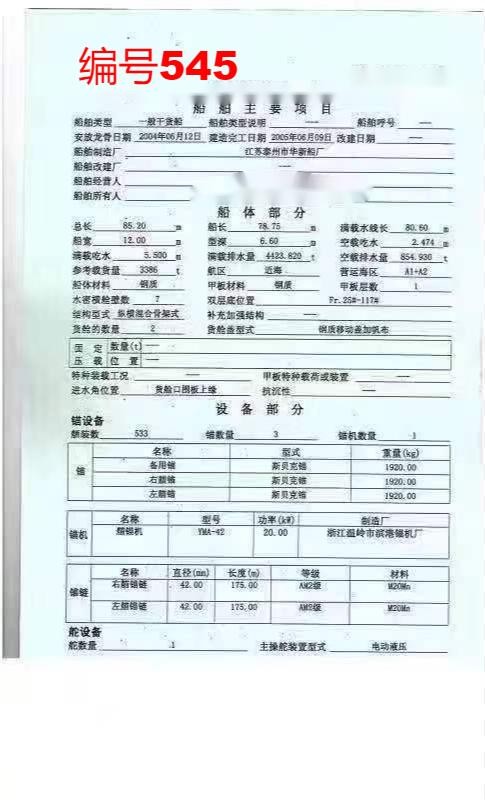 编号545
船舶主要项目
船舶类型 一般干货船 船舶类型说明 —— 船舶呼号 ——
安放龙骨日期 2004年06月12日 建造完工日期 2005年06月09日 改建日期 ——
船舶制造厂 江苏泰州市华新船厂
船舶改建厂
船舶经营人
船舶所有人
船体部分
总长 85.20 m 船长 78.75 m 满载水线长 80.60 m
船宽 12.00 m 型深 6.60 m 空载吃水 2.474 m
满载吃水 5.500 m 满载排水量 4423.820 t 空载排水量 854.930 t
参考载货量 3386 t 航区 近海 营运海区 A1+A2
船体材料 钢质 甲板材料 钢质 甲板层数 1
水密横舱壁数 7 双层底位置 Fr.25#-117#
结构型式 纵横混合骨架式 补充加强结构 ——
货舱的数量 2 货舱盖型式 钢质移动盖加帆布
固定压载 数量(t) ——
位置 ——
特种装载工况 —— 甲板特种载荷或装置 ——
进水角位置 货舱口围板上缘 抗沉性 ——
设备部分
锚设备
舾装数 533 锚数量 3 锚机数量 1
锚 名称 型式 重量(kg)
备用锚 斯贝克锚 1920.00
右艏锚 斯贝克锚 1920.00
左艏锚 斯贝克锚 1920.00
锚机 名称 型号 功率(kW) 制造厂
艏锚机 YMA-42 20.00 浙江温岭市滨港锚机厂
锚链 名称 直径(mm) 长度(m) 等级 材料
右艏锚链 42.00 175.00 AM2级 M20Mn
左艏锚链 42.00 175.00 AM2级 M20Mn
舵设备
舵数量 1 主操舵装置型式 电动液压